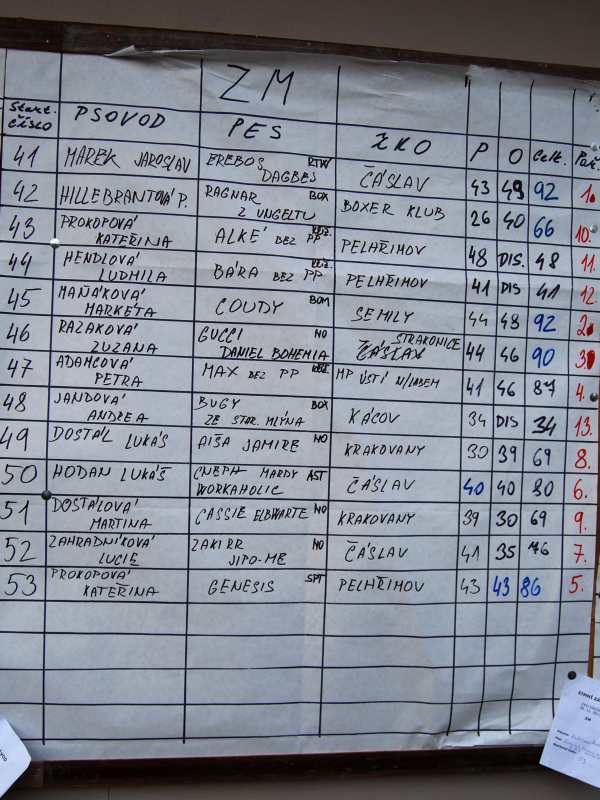 ZM
Start. číslo PSOVOD PES ZKO P O Celk. Poř.
41 MAREK JAROSLAV EREBOS DAGBES RTW ČÁSLAV 43 49 92 1.
42 HILLEBRANTOVÁ P. RAGNAR Z UNGELTU BOX BOXER KLUB 26 40 66 10.
43 PROKOPOVÁ KATEŘINA ALKÉ BEZ PP PELHŘIMOV 48 DIS. 48 11.
44 HENDLOVÁ LUDMILA BÁRA BEZ PP PELHŘIMOV 41 DIS 41 12.
45 MAŇÁKOVÁ MARKÉTA COUDY BOM SEMILY 44 48 92 2.
46 RAZAKOVÁ ZUZANA GUCCI DANIEL BOHEMIA NO STRAKONICE 44 46 90 3.
47 ADAMCOVÁ PETRA MAX BEZ PP MP ÚSTÍ N/LABEM 41 46 87 4.
48 JANDOVÁ ANDREA BUGY ZE STAR. MLÝNA BOX KÁCOV 34 DIS 34 13.
49 DOSTÁL LUKÁŠ AIŠA JAMIRE NO KRAKOVANY 30 39 69 8.
50 HODAN LUKÁŠ GNEPH MARDY WORKAHOLIC AST ČÁSLAV 40 40 80 6.
51 DOSTÁLOVÁ MARTINA CASSIE ELBWARTE NO KRAKOVANY 39 30 69 9.
52 ZAHRADNÍKOVÁ LUCIE ZAKIRR JIPO-ME NO ČÁSLAV 41 35 76 7.
53 PROKOPOVÁ KATEŘINA GENESIS SPT PELHŘIMOV 43 43 86 5.